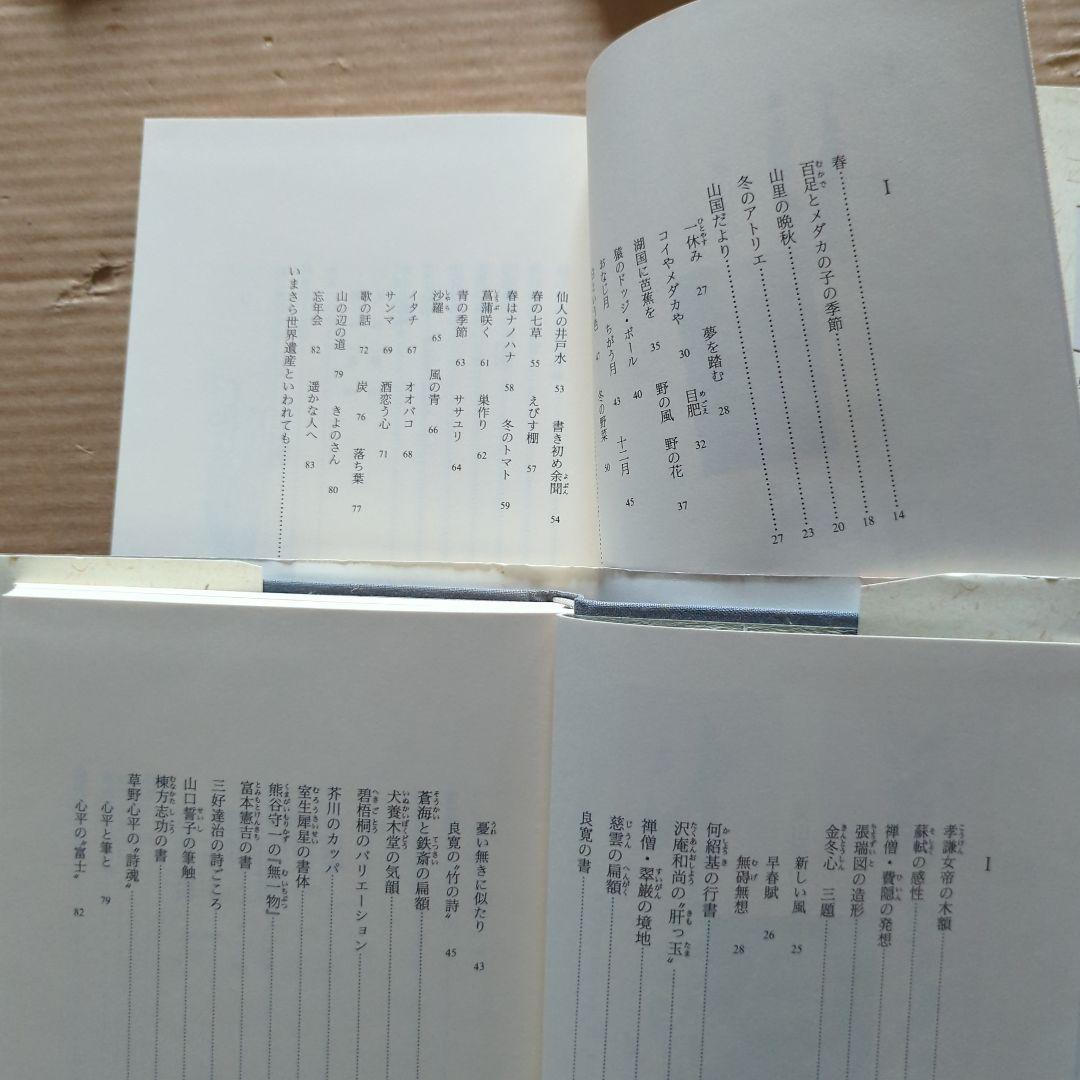 I
春……14
百足とメダカの子の季節……18
山里の晩秋……20
冬のアトリエ……23
山国だより……27
一休み 27 夢を踏む 28
コイやメダカや 30 目肥 32
湖国に芭蕉を 35 野の風 野の花 37
猿のドッジ・ボール 40
おなじ月 ちがう月 43 十二月 45
47 冬の野菜 50
仙人の井戸水 53 書き初め余聞 54
春の七草 55 えびす棚 57
春はナノハナ 58 冬のトマト 59
菖蒲咲く 61 巣作り 62
青の季節 63 ササユリ 64
沙羅 65 風の青 66
イタチ 67 オオバコ 68
サンマ 69 酒恋う心 71
歌の話 72 炭 76 落ち葉 77
山の辺の道 79 きよのさん 80
忘年会 82 遥かな人へ 83
いまさら世界遺産といわれても……
I
孝謙女帝の木額……
蘇軾の感性……
禅僧・費隠の発想……
張瑞図の造形……
金冬心 三題……
新しい風 25
早春賦 26
無碍無想 28
何紹基の行書……
沢庵和尚の〝肝っ玉〟……
禅僧・翠巌の境地……
慈雲の扁額……
良寛の書……
憂い無きに似たり 43
良寛の〝竹の詩〟 45
蒼海と鉄斎の扁額……
犬養木堂の気韻……
碧梧桐のバリエーション……
芥川のカッパ……
室生犀星の書体……
熊谷守一の『無一物』……
富本憲吉の書……
三好達治の詩ごころ……
山口誓子の筆触……
棟方志功の書……
草野心平の〝詩魂〟……
心平と筆と 79
心平の〝富士〟 82